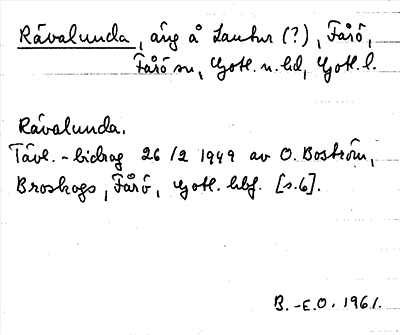 Rävalunda, äng å Lautur (?), Fårö,
Fårö sn, Gotl. n. hd, Gotl. l.
Rävalunda.
Tävl.-bidrag 26/2 1949 av O. Boström,
Broskogs, Fårö, Gotl. hbf. [s.6].
B.-E.O. 1961.